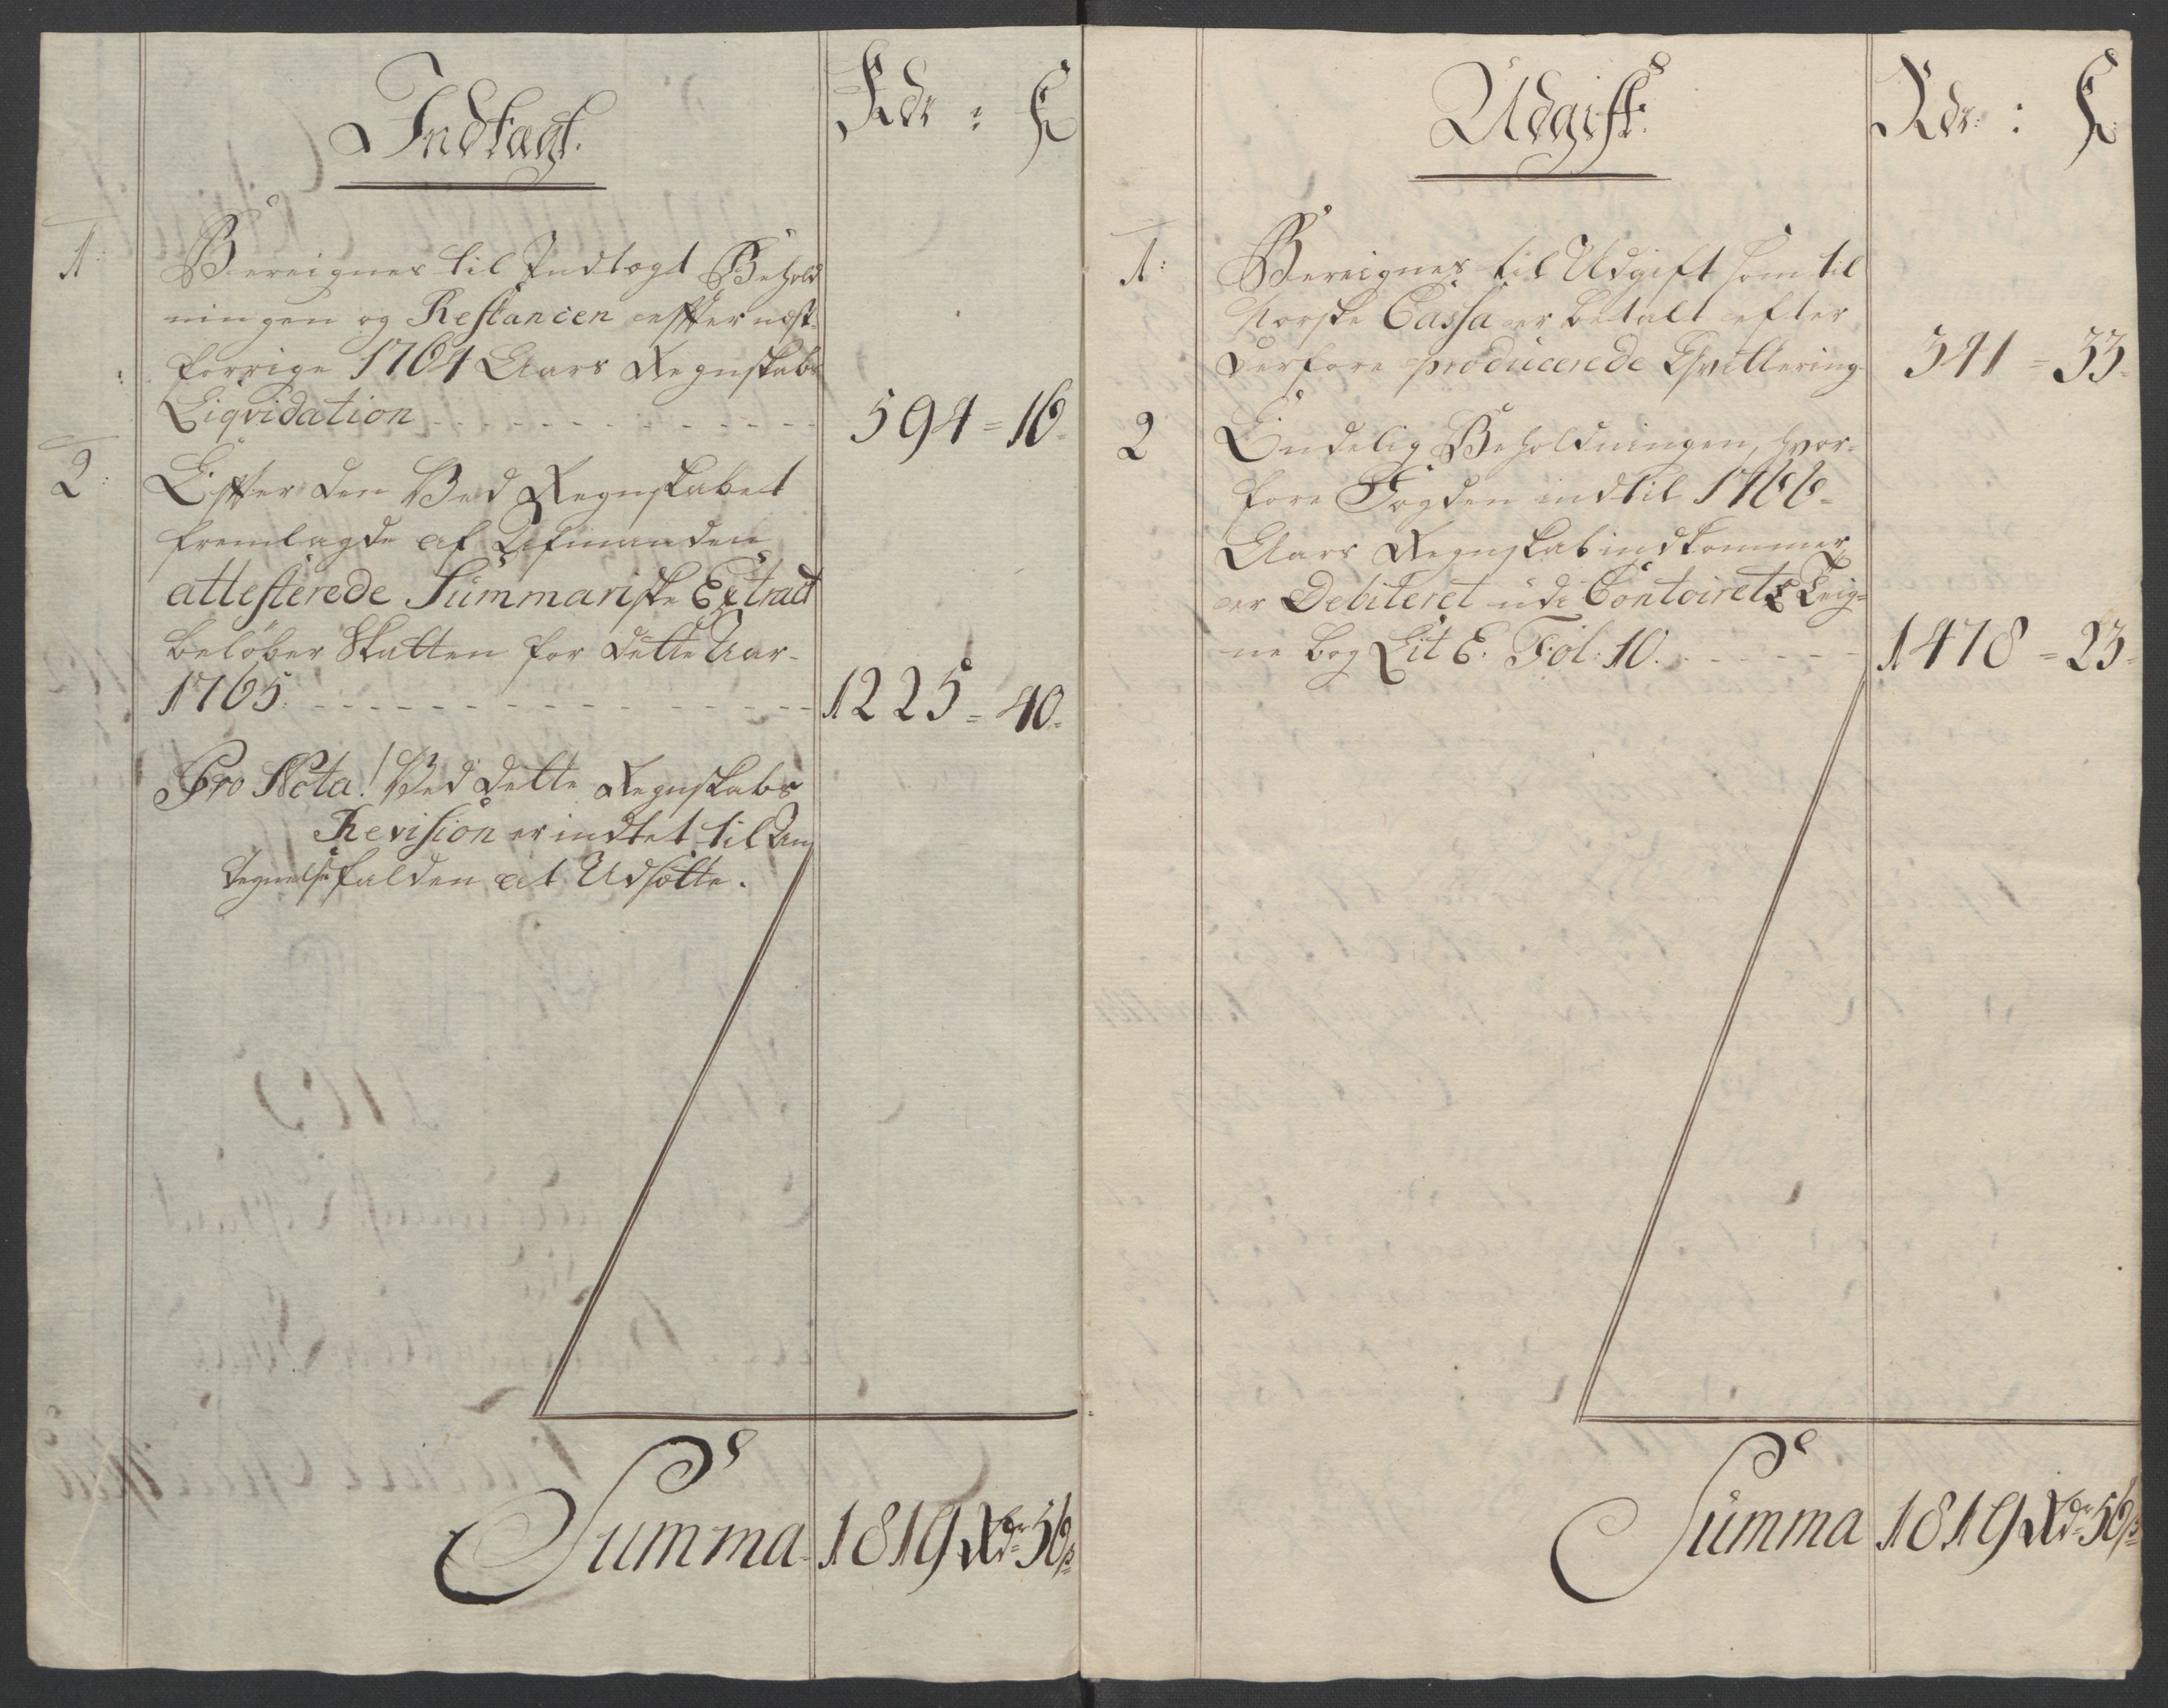 Indtægt.
Rdr : ß
1:
Bereignes til Indtægt Behold
ningen og Restancen effter næst-
forrige 1764 Aars Regnskabs
Liqvidation - - - - 594 = 16.
2:
Effter den Ved Regnskabet
fremlagde af
attesterede Summariske Extract
beløber Skatten for dette Aar
1765. - - - - 1225 = 40.
Pro Nota! Ved dette Regnskabs
Revision er indtet til An
tegnelse falden at Udsætte.
Summa 1819 Rdr 56 ß
Udgift:
Rdr : ß
1:
Bereignes til Udgift som til
Norske Cassa er betalt efter
derfore producerede Qvittering 341 = 33.
2
Endelig Beholdningen, hvor-
fore Fogden indtil 1766
Aars Regnskab indkommer,
er Debiteret udi Contoirets Teig-
ne bog Lit E. Fol: 10. - - - 1478 = 23.
Summa 1819 Rdr 56 ß